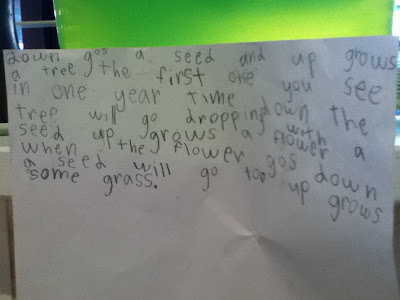 down gos a seed and up grows
a tree the first one you see
in one year time
tree will go dropping down the
seed up grows a flower with a
when the flower gos down
a seed will go too up grows
some grass.